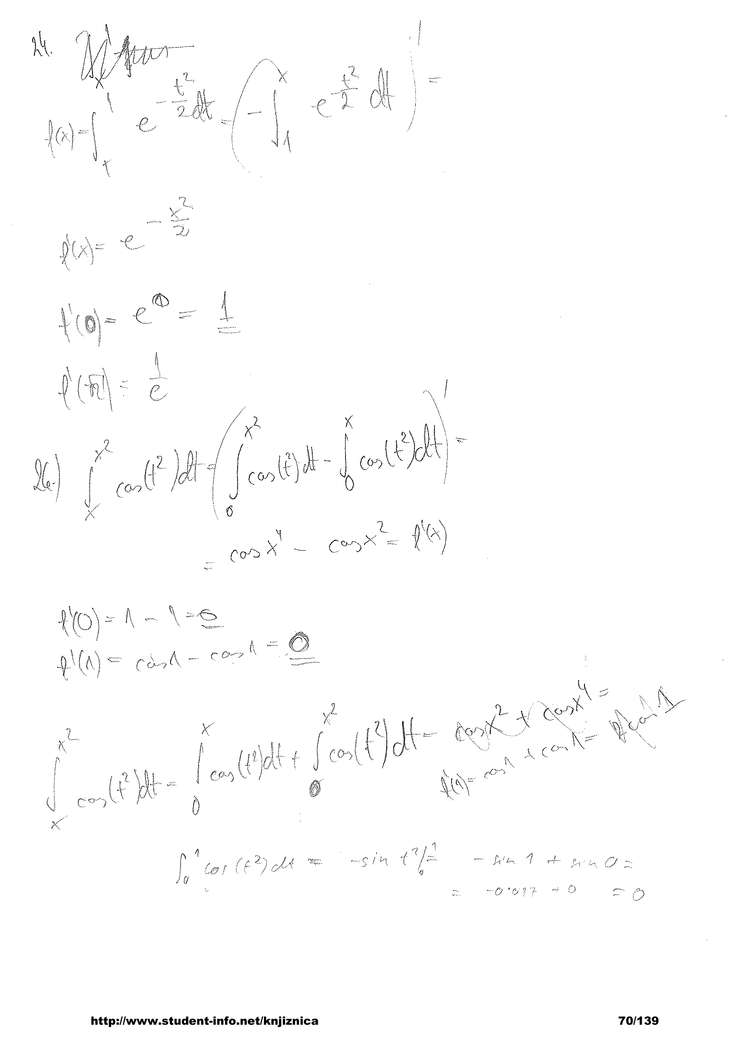 24.
f(x) = ∫ₓ¹ e^(-t²/2) dt = (-∫₁ˣ e^(-t²/2) dt)' =
f'(x) = e^(-x²/2)
f'(0) = e⁰ = 1
f'(√2) = 1/e
26.) ∫ₓ^(x²) cos(t²)dt = (∫₀^(x²) cos(t²)dt - ∫₀ˣ cos(t²)dt)' =
= cos x⁴ - cos x² = f'(x)
f'(0) = 1 - 1 = 0
f'(1) = cos1 - cos1 = 0
∫ₓ^(x²) cos(t²)dt = ∫₀ˣ cos(t²)dt + ∫₀^(x²) cos(t²)dt = cos x² + cos x⁴ =
f'(1) = cos1 + cos1 = 2cos1
∫₀¹ cos(t²)dt = -sin t² |₀¹ = -sin 1 + sin 0 =
= -0.017 - 0 = 0
http://www.student-info.net/knjiznica
70/139